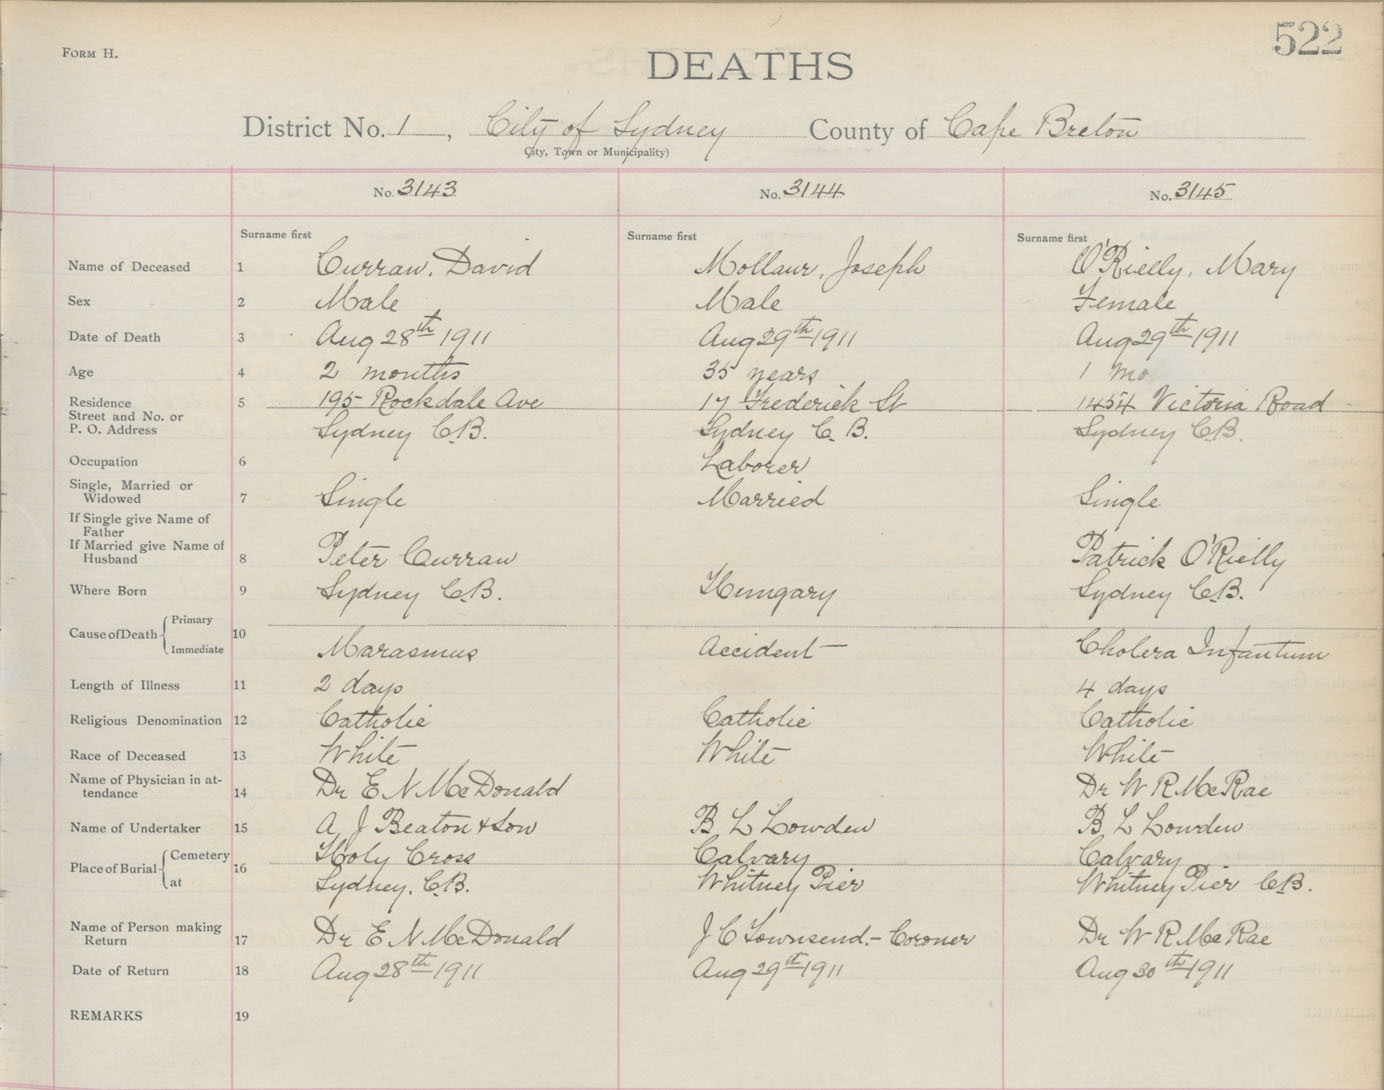 522
FORM H.
DEATHS
District No. 1, City of Sydney County of Cape Breton
City, Town or Municipality)
No. 3143 No. 3144 No. 3145
Surname first Surname first Surname first
Name of Deceased 1 Curran, David Mollaur, Joseph O'Rielly, Mary
Sex 2 Male Male Female
Date of Death 3 Aug 28th 1911 Aug 29th 1911 Aug 29th 1911
Age 4 2 months 35 years 1 mo
Residence 5 195 Rockdale Ave 17 Frederick St 1454 Victoria Road
Street and No. or
P. O. Address Sydney C.B. Sydney C. B. Sydney C.B.
Occupation 6 Laborer
Single, Married or
Widowed 7 Single Married Single
If Single give Name of
Father
If Married give Name of
Husband 8 Peter Curran Patrick O'Rielly
Where Born 9 Sydney C.B. Hungary Sydney C.B.
Cause of Death Primary 10
Immediate Marasmus Accident Cholera Infantum
Length of Illness 11 2 days 4 days
Religious Denomination 12 Catholic Catholic Catholic
Race of Deceased 13 White White White
Name of Physician in at-
tendance 14 Dr E N McDonald Dr W R McRae
Name of Undertaker 15 A J Beaton & Son B L Lowden B L Lowden
Place of Burial Cemetery 16 Holy Cross Calvary Calvary
at Sydney. C.B. Whitney Pier Whitney Pier C.B.
Name of Person making
Return 17 Dr E N McDonald J C Townsend - Coroner Dr W R McRae
Date of Return 18 Aug 28th 1911 Aug 29th 1911 Aug 30th 1911
REMARKS 19